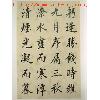 躬逢勝餞時維
九月序屬三秋
潦水盡而寒潭
清煙光凝而暮